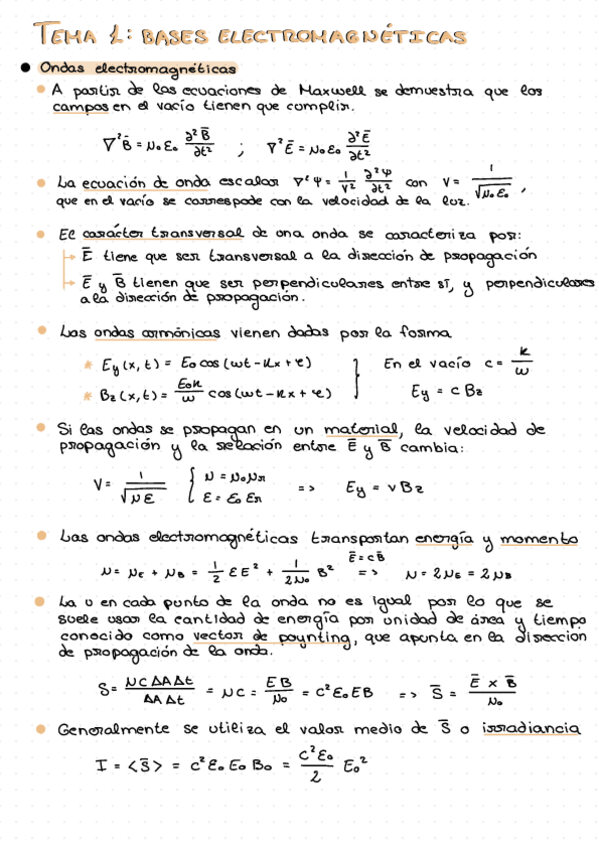 TEMA 1: BASES ELECTROMAGNÉTICAS
● Ondas electromagnéticas
• A partir de las ecuaciones de Maxwell se demuestra que los
campos en el vacío tienen que cumplir.
∇²B̄ = μ₀ε₀ ∂²B̄/∂t² ; ∇²Ē = μ₀ε₀ ∂²Ē/∂t²
• La ecuación de onda escalar ∇²Ψ = 1/V² ∂²Ψ/∂t² con V = 1/√(μ₀ε₀),
que en el vacío se correspode con la velocidad de la luz.
• El carácter transversal de una onda se caracteriza por:
→ Ē tiene que ser transversal a la dirección de propagación
→ Ē y B̄ tienen que ser perpendiculares entre sí, y perpendiculares
a la dirección de propagación.
• Las ondas armónicas vienen dadas por la forma
* Ey(x,t) = E₀ cos(ωt - kx + φ) } En el vacío c = k/ω
* Bz(x,t) = E₀k/ω cos(ωt - kx + φ) } Ey = c Bz
• Si las ondas se propagan en un material, la velocidad de
propagación y la relación entre Ē y B̄ cambia:
V = 1/√(με) { μ = μ₀μr ε = ε₀εr => Ey = v Bz
• Las ondas electromagnéticas transportan energía y momento
u = uE + uB = 1/2 εE² + 1/2μ₀ B² Ē=cB̄ => u = 2uE = 2uB
• La u en cada punto de la onda no es igual por lo que se
suele usar la cantidad de energía por unidad de área y tiempo
conocido como vector de poynting, que apunta en la dirección
de propagación de la onda.
S = uCΔAΔt/ΔAΔt = uC = EB/μ₀ = c²ε₀EB => S̄ = Ē × B̄/μ₀
• Generalmente se utiliza el valor medio de S̄ o irradiancia
I = <S̄> = c²ε₀E₀B₀ = c²ε₀/2 E₀²